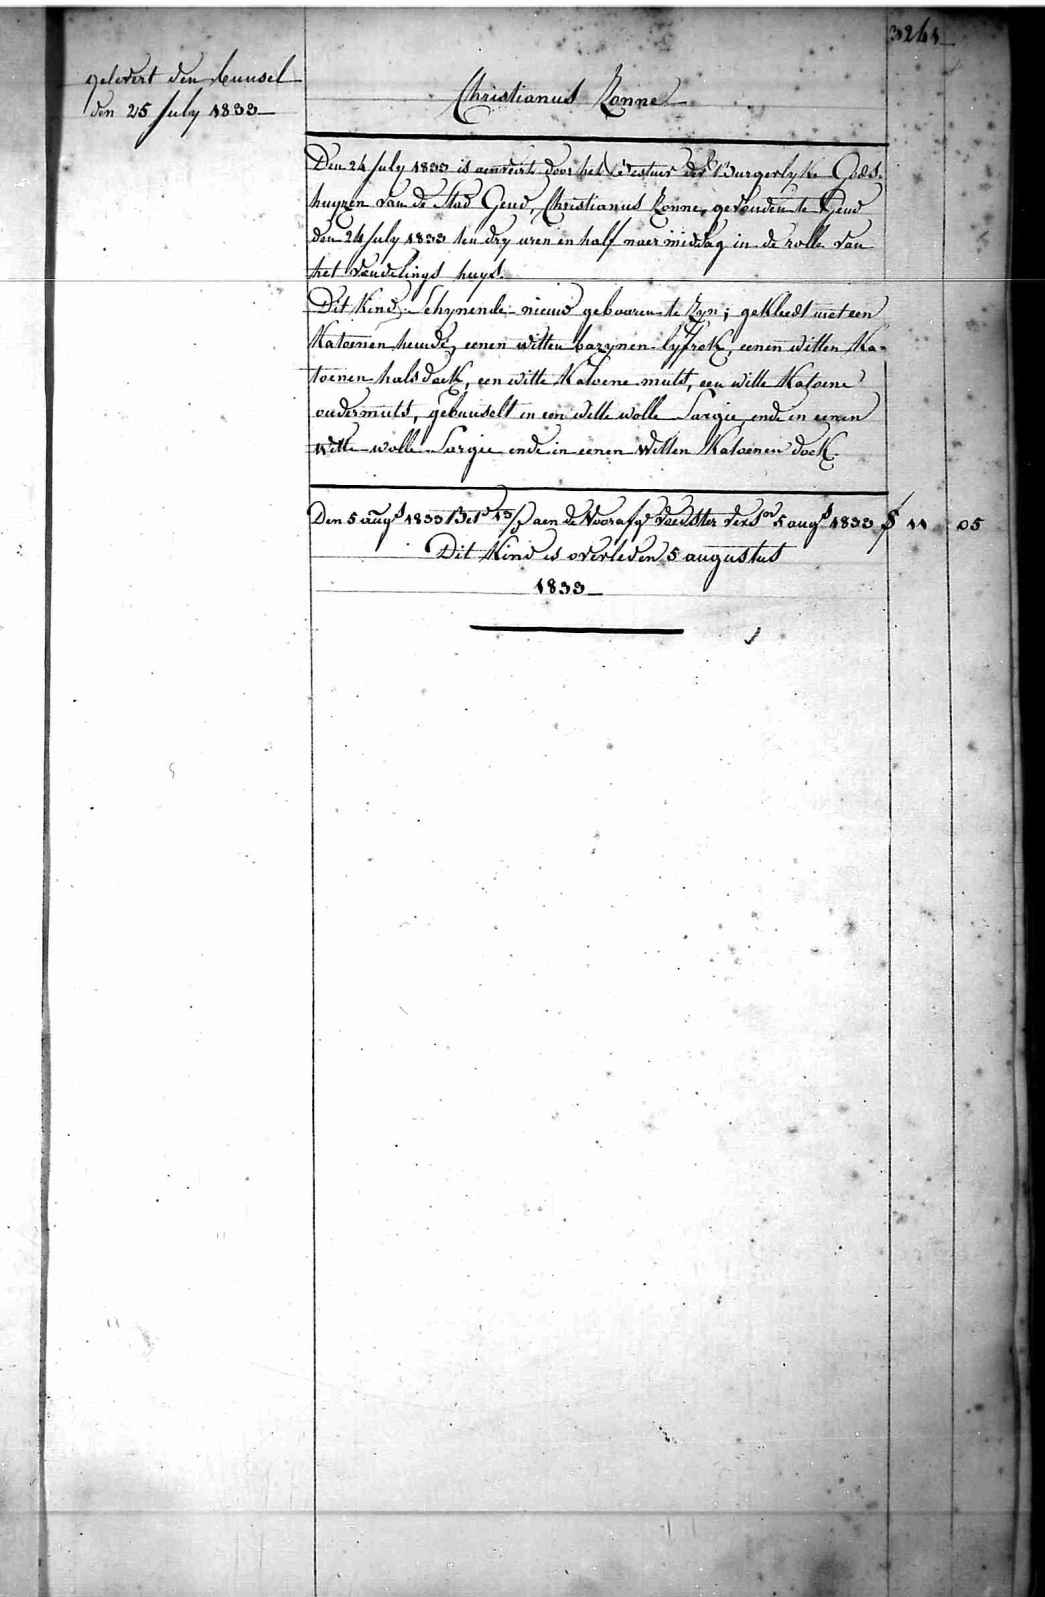 3261
gelevert den bunsel
den 25 July 1833
Christianus Zonne
Den 24 July 1833 is aenveirt door het Bestuer der Burgerlyke Gods-
huyzen van de Stad Gend, Christianus Zonne, gevonden te Gend
den 24 July 1833 ten dry uren en half naer middag in de rolle van
het vondelings huys.
Dit Kind Schynende nieuw gebooren te Zyn; gekleedt met een
Katoenen hemde, eenen witten bazynen lyfrok, eenen witten Ka-
toenen halsdoek, een witte Katoene muts, een witte Katoene
ondermuts, gebunselt in een witte wolle Sargie ende in eenen
witte wolle Sargie ende in eenen witten Katoenen doek.
Den 5 augs 1833 aen de Voorsgde Voedster 5 augs 1833 11 05
Dit Kind is overleden 5 augustus
1833